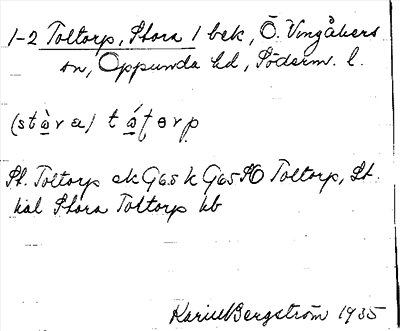 1-2 Toltorp, Stora 1 bek, Ö. Vingåkers
sn, Oppunda hd, Söderm. l.
(stòra) tɷ́ʈɵrp
St. Toltorp ek G65 k G65 SO Toltorp, St.
kal Stora Toltorp kb
Karin Bergström 1935